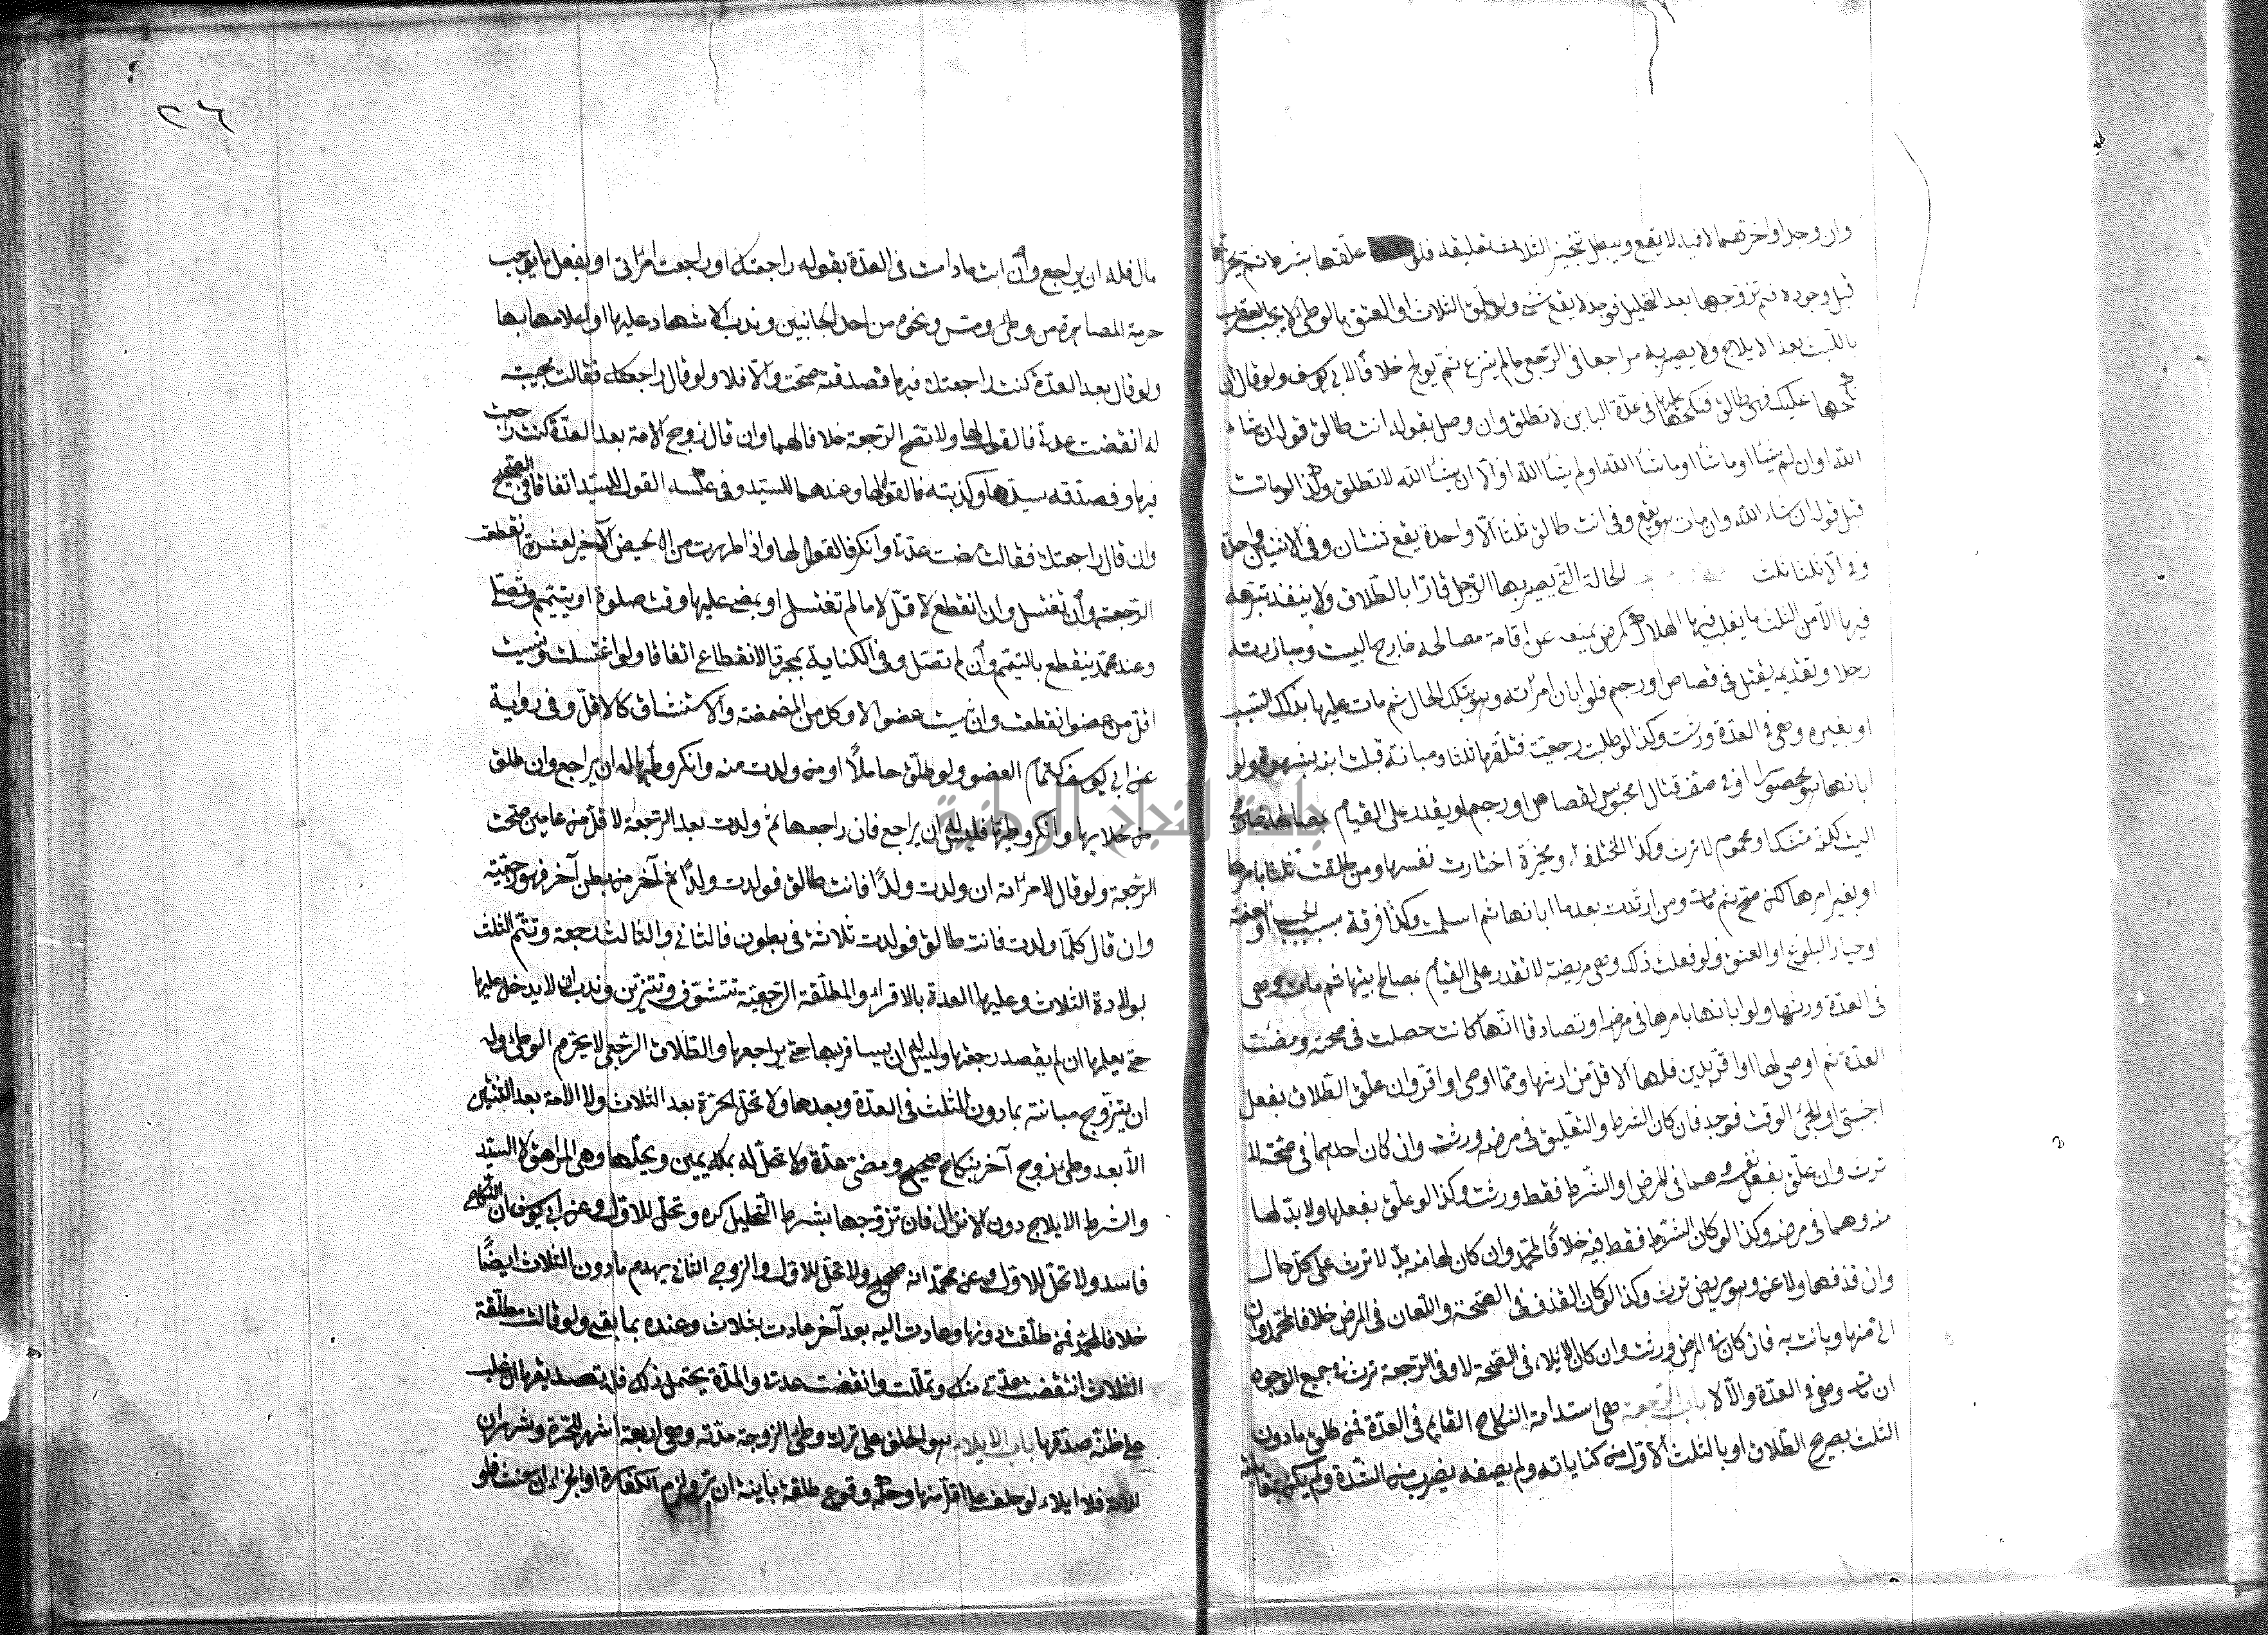 وان وجدا او آخرهما لا فيه لا يقع ويبطل تنجيز الثلاث تعليقه فلو علقها بشرط ثم نجزها
قبل وجوده ثم تزوجها بعد التحليل فوجد لا يقع شئ ولو علق الثلاث او العتق بالوطئ لا يجب العقر
باللبث بعد الايلاج ولا يصير به مراجعا فى الرجعى ما لم ينزع ثم يولج خلافا لابى يوسف ولو قال ان
نكحتها عليك فهى طالق فنكحها عليها فى عدة الباين لا تطلق وان وصل بقوله انت طالق قوله ان شاء
الله او ان لم يشا او ما شا او ما شا الله او لم يشا الله او الا ان يشا الله لا تطلق وكذا لو ماتت
قبل قوله ان شاء الله وان مات هو يقع وفى انت طالق ثلثا الا واحدة يقع ثنتان وفى الا ثنتين واحدة
وفى الا ثلثا ثلث الحالة التى يصير بها الرجل فارا بالطلاق ولا ينفذ تبرعه
فيها الا من الثلث ما يغلب فيها الهلاك كمرض يمنعه عن اقامة مصالحه خارج البيت ومبارزته
رجلا وتقديمه ليقتل فى قصاص او رجم فلو ابان امرأته وهو بتلك الحال ثم مات عليها بذلك السبب
او بغيره وهى فى العدة ورثت وكذا لو طلبت رجعية فطلقها ثلثا ومبانة قبلت ابنه بشهوة ولو
ابانها وهو محصور او فى صف قتال او محبوس لقصاص او رجم او يقدر على القيام بمصالحه خارج
البيت لكنه مشتك او محموم لا ترث وكذا المختلعة ومخيرة اختارت نفسها ومن طلقت ثلثا بامرها
او بغير امرها لكنه صح ثم مات ومن ارتدت بعد ما ابانها ثم اسلمت وكذا فرقة بسبب الجب او العنة
او خيار البلوغ او العتق ولو فعلت ذلك وهى مريضة لا تقدر على القيام بمصالح بيتها ثم ماتت وهى
فى العدة ورثها ولو ابانها بامرها فى مرضه او تصادقا انها كانت حصلت فى صحته ومضت
العدة ثم اوصى لها او اقر بدين فلها الاقل من ارثها ومما اوصى او اقر وان علق الطلاق بفعل
اجنبى او بمجئ الوقت فوجد فان كان الشرط والتعليق فى مرضه ورثت وان كان احدهما فى صحته لا
ترث وان علق بفعل نفسه وهما فى المرض او الشرط فقط ورثت وكذا لو علق بفعلها ولا بد لها
منه وهما فى مرضه وكذا لو كان الشرط فقط فيه خلافا لمحمد وان كان لها منه بد لا ترث على كل حال
وان قذفها ولاعن وهو مريض ترث وكذا لو كان القذف فى الصحة واللعان فى المرض خلافا لمحمد وان
الى منها وبانت به فان كان فى المرض ورثت وان كان الايلاء فى الصحة لا وفى الرجعة ترث فى جميع الوجوه
ان مات وهى فى العدة والا لا باب الرجعة هى استدامة النكاح القايم فى العدة فمن طلق ما دون
الثلث بصريح الطلاق او بالثلث الاول من كناياته ولم يصفه بضرب من الشدة ولم يكن بمقابلة
مال فله ان يراجع وان ابت ما دامت فى العدة بقوله راجعتك او راجعت امرأتى او بفعل ما يوجب
حرمة المصاهرة من وطئ ومس ونحوه من احد الجانبين وندب الاشهاد عليها او اعلامها بها
ولو قال بعد العدة كنت راجعتك فيها فصدقته صحت والا فلا ولو قال راجعتك فقالت مجيبة
له انقضت عدتى فالقول لها ولا تصح الرجعة خلافا لهما وان قال زوج الامة بعد العدة كنت راجعت
فيها وصدقه سيدها وكذبته فالقول لها وعندهما للسيد وفى عكسه القول للسيد اتفاقا فى الصحيح
وان قال راجعتك فقالت مضت عدتى وانكر فالقول لها واذا طهرت من الحيض الاخير لعشرة انقطعت
الرجعة وان لم تغتسل وان انقطع لاقل لا ما لم تغتسل او يمضى عليها وقت صلوة او يتيمم وتصلى
وعند محمد ينقطع بالتيمم وان لم تصل وفى الكتابية بمجرد الانقطاع اتفاقا ولو اغتسلت ونسيت
اقل من عضو انقطعت وان نسيت عضوا لا وكل من المضمضة والاستنشاق كالاقل وفى رواية
عن ابى يوسف كتمام العضو ولو طلق حاملا او من ولدت منه وانكر وطئها له ان يراجع وان طلق
من خلا بها وانكر وطئها فليس له ان يراجع فان راجعها ثم ولدت بعد الرجعة لاقل من عامين صحت
الرجعة ولو قال لامرأته ان ولدت ولدا فانت طالق فولدت ولدا ثم آخر من بطن آخر فهو رجعية
وان قال كلما ولدت فانت طالق فولدت ثلاثة فى بطون فالثانى والثالث رجعة وتتم الثلث
بولادة الثلاث وعليها العدة بالاقراء والمطلقة الرجعية تتشوف وتتزين وندب ان لا يدخل عليها
حتى يعلمها ان لم يقصد رجعتها وليس له ان يسافر بها حتى يراجعها والطلاق الرجعى لا يحرم الوطئ وله
ان يتزوج مبانته بما دون الثلث فى العدة وبعدها ولا تحل الحرة بعد الثلاث ولا الامة بعد الثنتين
الا بعد وطئ زوج آخر بنكاح صحيح ومضى عدته ولا تحل له بملك يمين ويحلها وطئ المراهق لا السيد
والشرط الايلاج دون الانزال فان تزوجها بشرط التحليل كره وتحل للاول وعن ابى يوسف ان النكاح
فاسد ولا تحل للاول وعن محمد انه صحيح ولا تحل للاول والزوج الثانى يهدم ما دون الثلاث ايضا
خلافا لمحمد فمن طلقت دونها وعادت اليه بعد آخر عادت بثلاث وعنده بما بقى ولو قالت مطلقة
الثلاث انقضت عدتى منك وتحللت وانقضت عدتى والمدة يحتمل ذلك فله تصديقها ان غلب
على ظنه صدقها باب الايلاء هو الحلف على ترك وطئ الزوجة مدته وهى اربعة اشهر للحرة وشهران
للامة فلا ايلاء لو حلف على اقل منها وحكمه وقوع طلقة باينة ان بر ولزوم الكفارة او الجزاء ان حنث فلو
٢٦
جامعة النجاح الوطنية